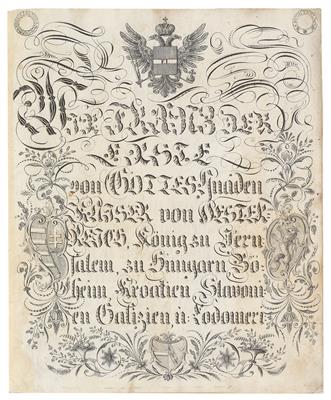 Wir FRANZ DER
ERSTE
von GOTTES Gnaden
KAISER von OESTER-
REICH, König zu Jeru-
salem, zu Hungarn, Bö-
heim, Kroatien, Slavoni-
en Galizien, u: Lodomeri-